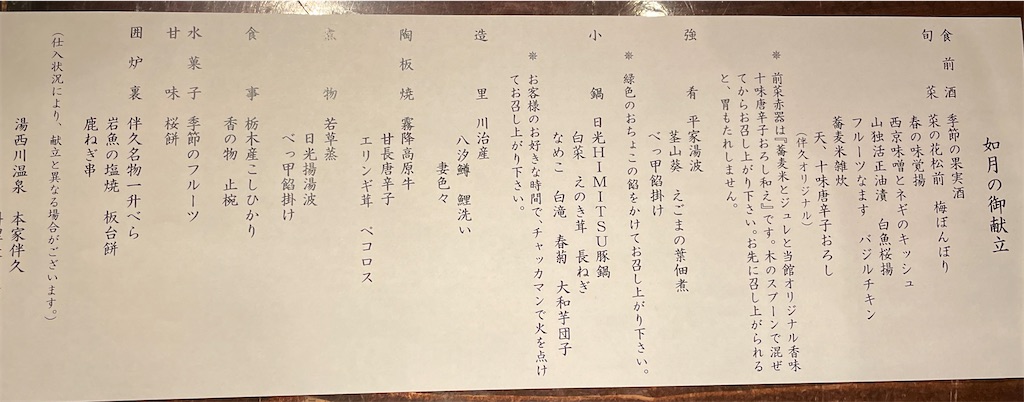 如月の御献立
食前酒　季節の果実酒
旬菜　菜の花松前　梅ぼんぼり
春の味覚揚
西京味噌とネギのキッシュ
山独活正油漬　白魚桜揚
フルーツなます　バジルチキン
蕎麦米雑炊
天、十味唐辛子おろし
（伴久オリジナル）
※　前菜赤器は『蕎麦米とジュレと当館オリジナル香味
十味唐辛子おろし和え』です。木のスプーンで混ぜ
てからお召し上がり下さい。お先に召し上がられる
と、胃もたれしません。
強肴　平家湯波
茎山葵　えごまの葉佃煮
べっ甲餡掛け
※　緑色のおちょこの餡をかけてお召し上がり下さい。
小鍋　日光HIMITSU豚鍋
白菜　えのき茸　長ねぎ
なめこ　白滝　春菊　大和芋団子
※　お客様のお好きな時間で、チャッカマンで火を点け
てお召し上がり下さい。
造里　川治産
八汐鱒　鯉洗い
妻色々
陶板焼　霧降高原牛
甘長唐辛子
エリンギ茸　ペコロス
点物　若草蒸
日光揚湯波
べっ甲餡掛け
食事　栃木産こしひかり
香の物　止椀
水菓子　季節のフルーツ
甘味　桜餅
囲炉裏　伴久名物一升べら
岩魚の塩焼　板台餅
鹿ねぎ串
（仕入状況により、献立と異なる場合がございます。）
湯西川温泉　本家伴久